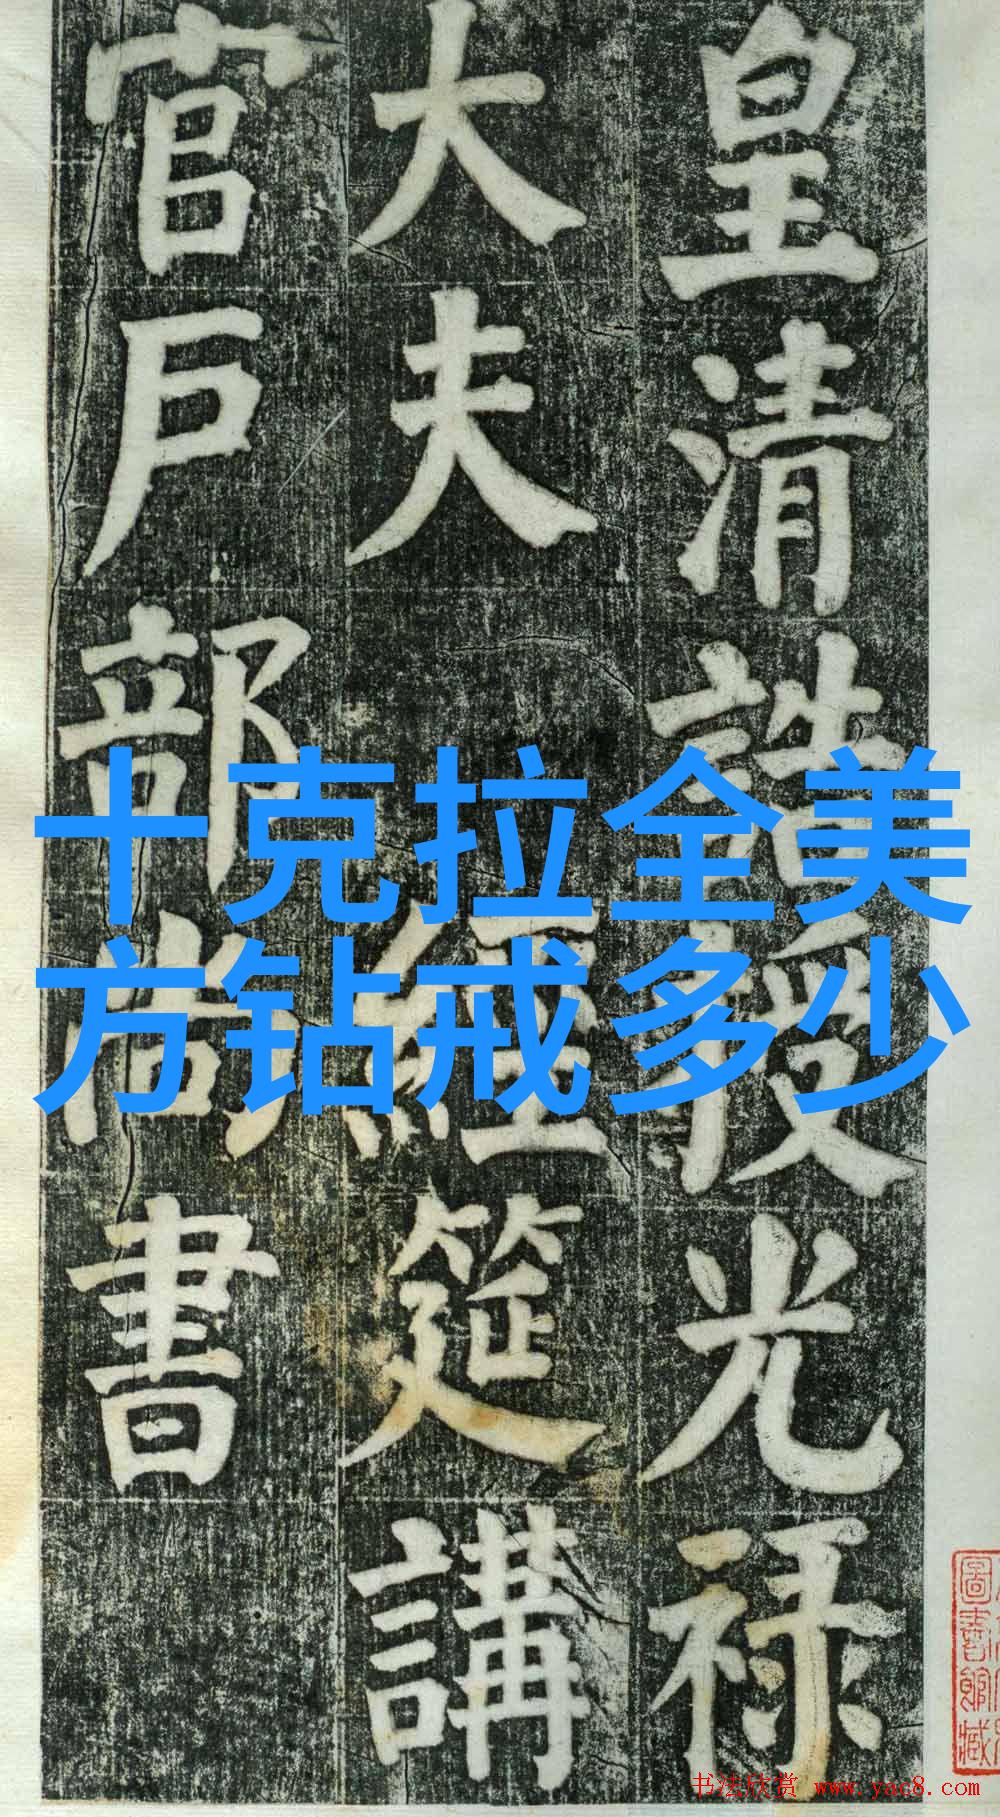 皇清誥授光禄
大夫 經筵講
官戶部尚書
十克拉全美
方钻戒多少
圖書館藏
书法欣赏 www.yac8.com